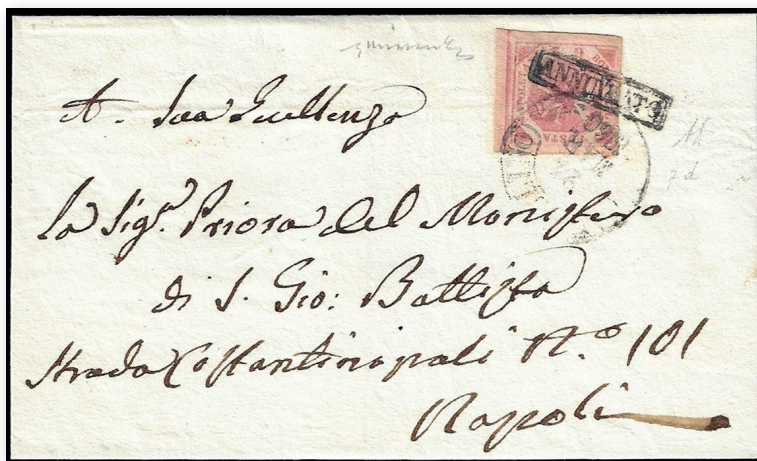 ANNULLATO
A. Sua Eccellenza
La Sigª. Priora del Monistero
di S. Gio: Battista
Strada Costantinopoli N.º 101
Napoli